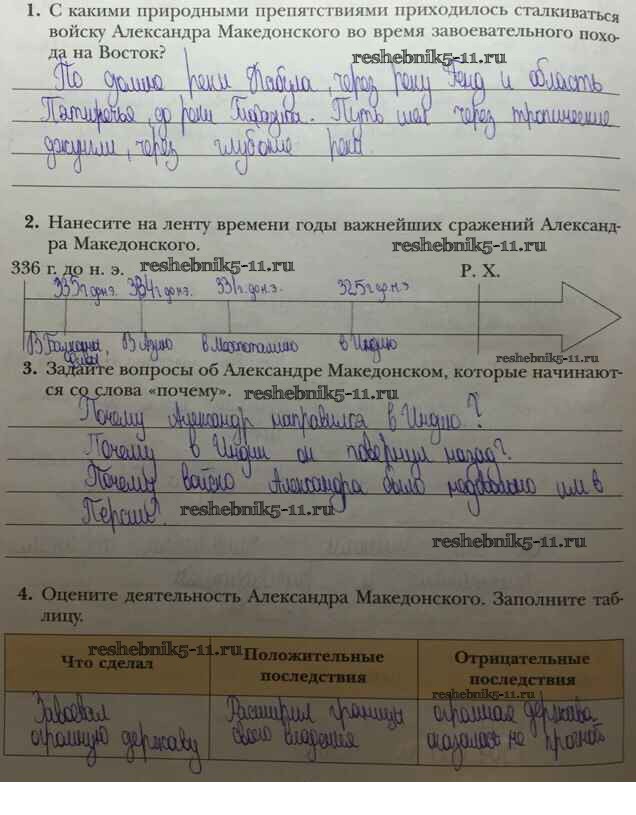 1. С какими природными препятствиями приходилось сталкиваться
войску Александра Македонского во время завоевательного похо-
да на Восток?
reshebnik5-11.ru
По долине реки Кабула, через реку Инд и область
Пятиречья, до реки. Путь шел через тропические
джунгли, через глубокие реки.
reshebnik5-11.ru
2. Нанесите на ленту времени годы важнейших сражений Александ-
ра Македонского.
reshebnik5-11.ru
336 г. до н. э.
reshebnik5-11.ru
Р. Х.
335г до н.э. 334г до н.э. 331г. до н.э. 325г до н.э
В Балканы, В Азию в Месопотамию в Индию
reshebnik5-11.ru
3. Задайте вопросы об Александре Македонском, которые начинают-
ся со слова «почему».
reshebnik5-11.ru
Почему Александр направился в Индию?
Почему в Индии он повернул назад?
Почему войско Александра было недовольно им в
Персии?
reshebnik5-11.ru
reshebnik5-11.ru
4. Оцените деятельность Александра Македонского. Заполните таб-
лицу.
reshebnik5-11.ru
Что сделал
Положительные
последствия
Отрицательные
последствия
reshebnik5-11.ru
Завоевал
огромную державу
Расширил границы
своего владения
огромная держава
оказалась не прочной